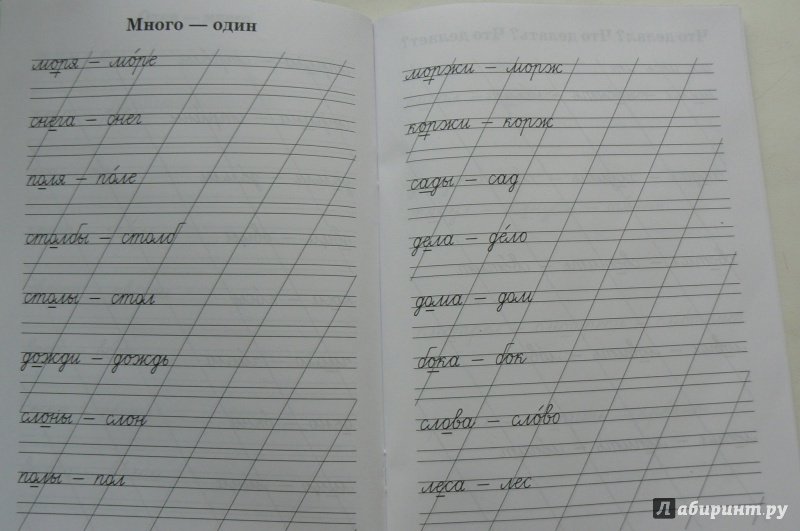 Много — один
моря – мо́ре
снега – снег
поля – по́ле
столбы – столб
столы – стол
дожди – дождь
слоны – слон
полы – пол
Что делал? Что делать? Что делает?
моржи – морж
коржи – корж
сады – сад
дела – де́ло
дома – дом
бока – бок
слова – сло́во
леса – лес
Лабиринт.ру